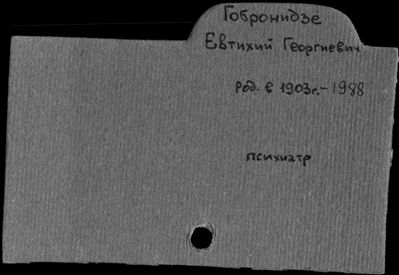 Гобронидзе
Евтихий Георгиевич
род. в 1903г.-1988
психиатр